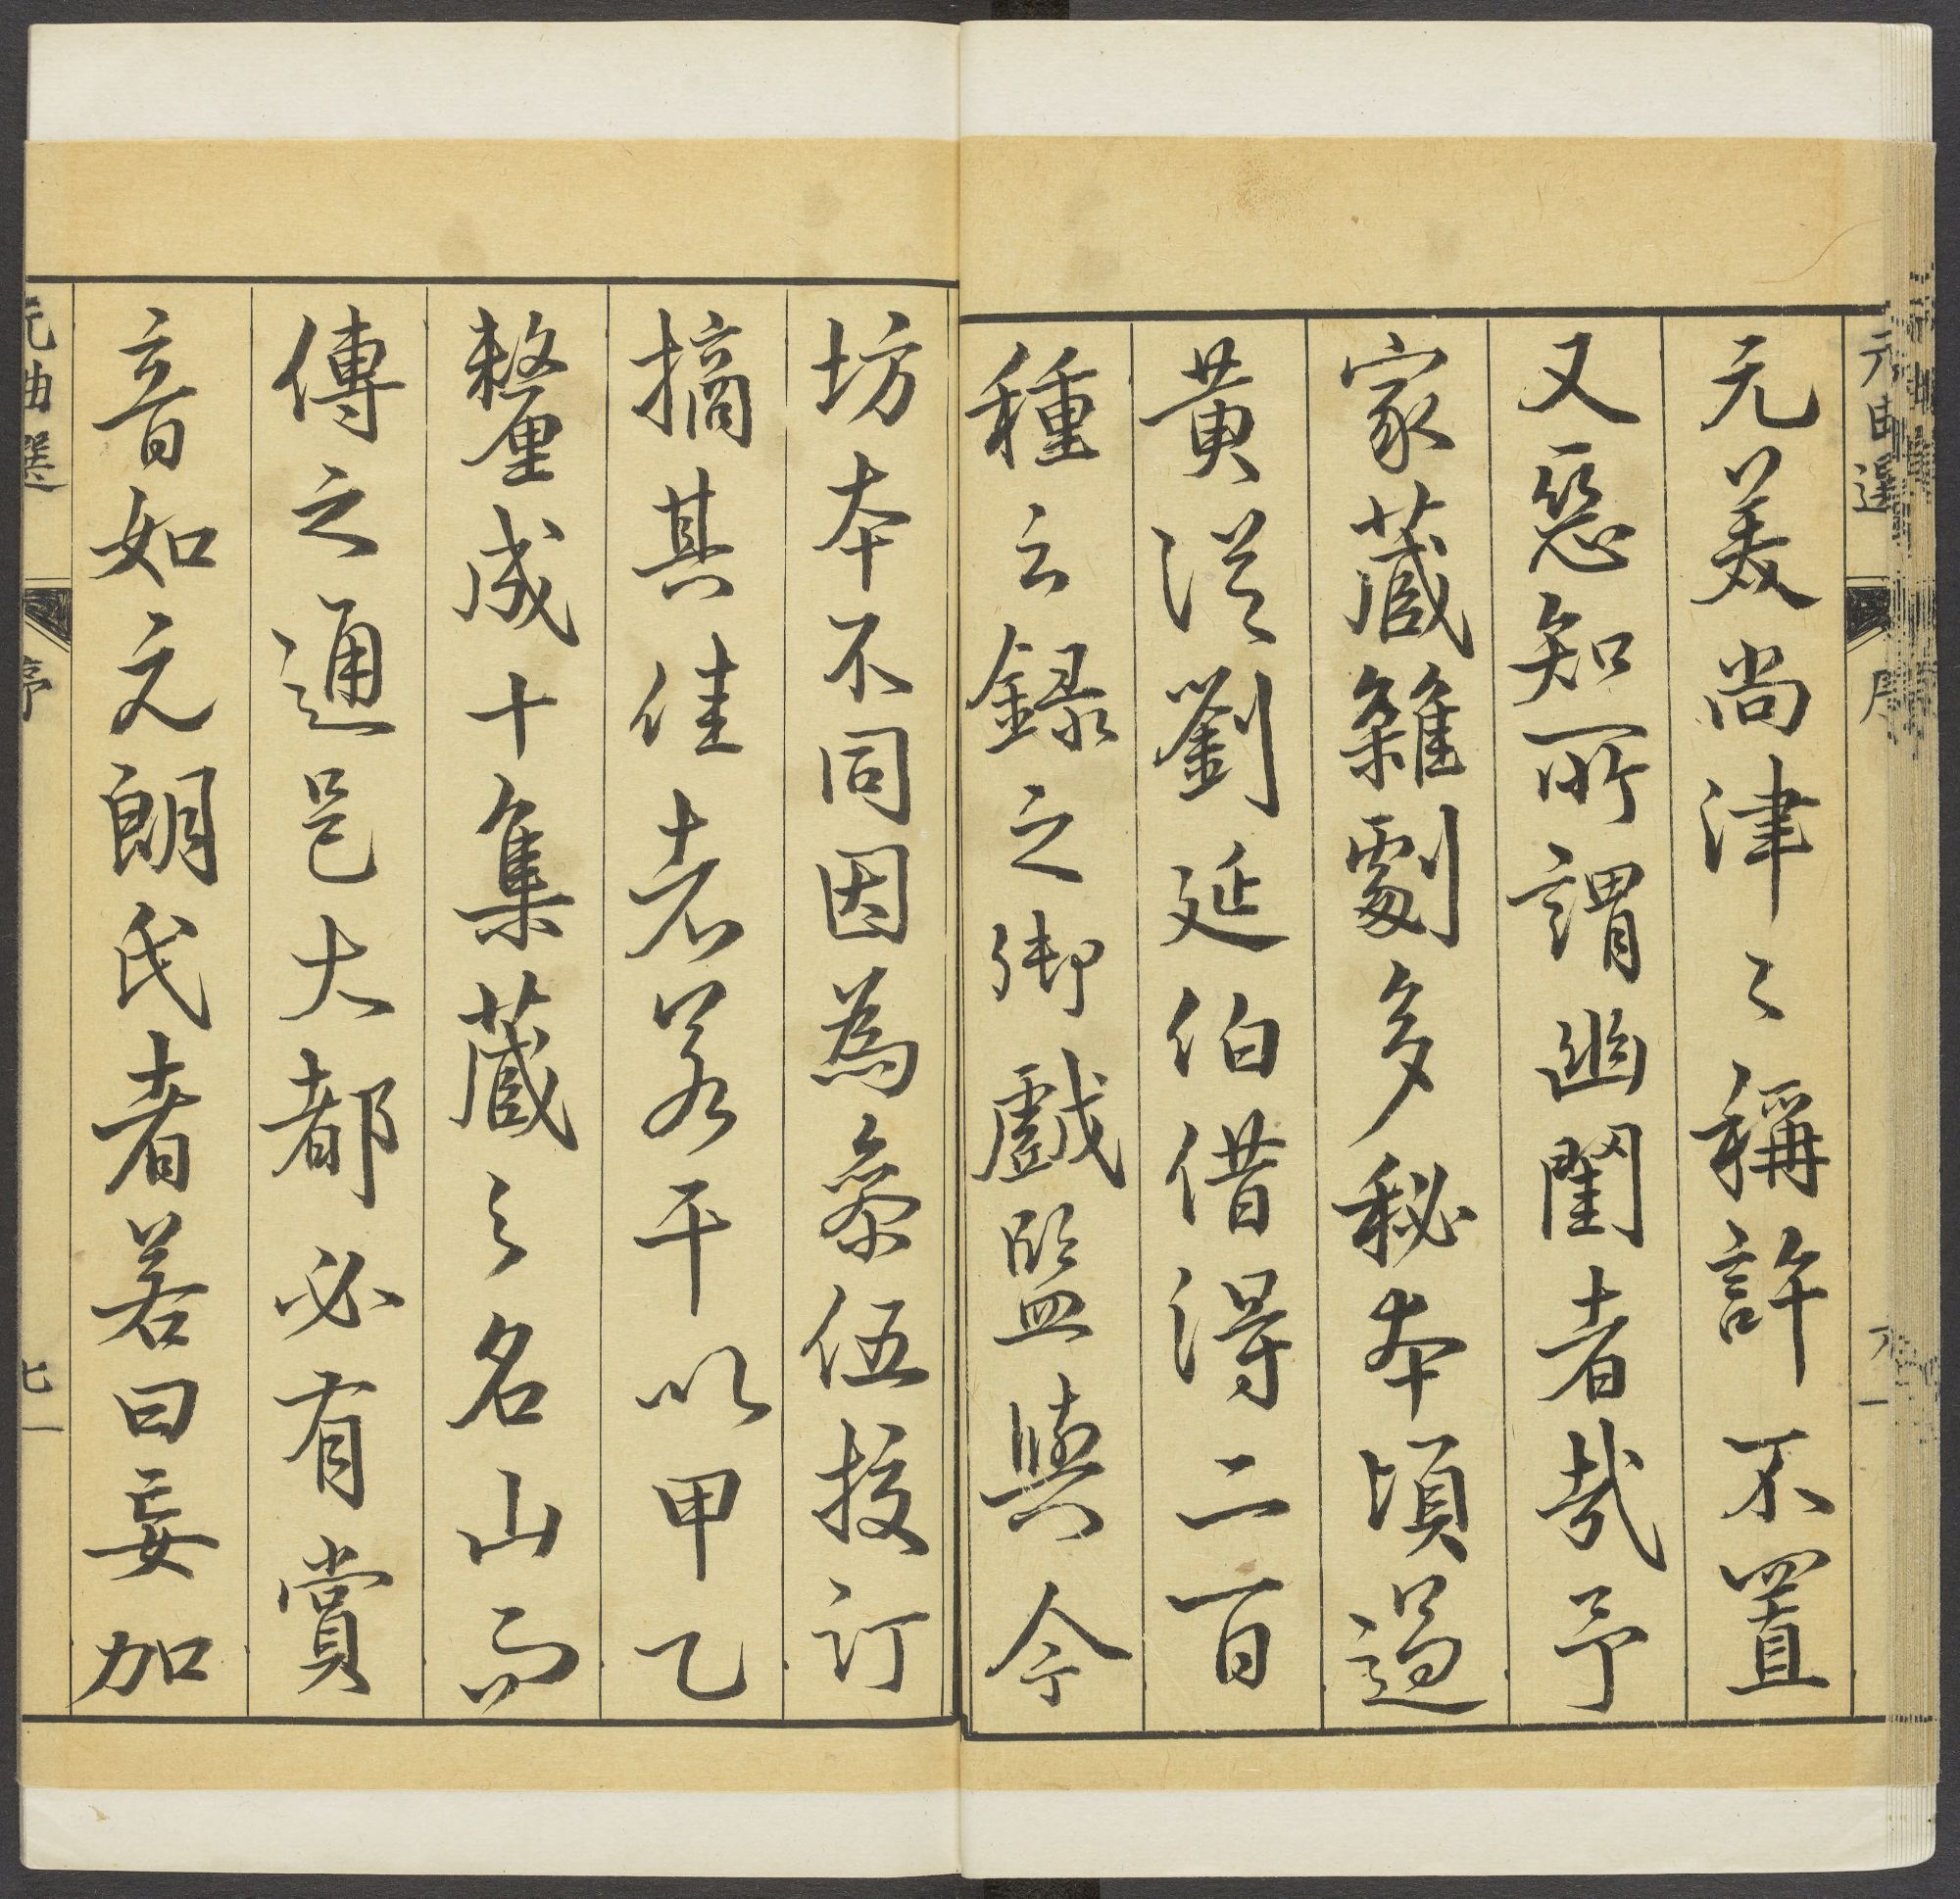 元曲選
序
元美尚津〻稱許不置
又惡知所謂幽閨者哉予
家藏雜劇多秘本頃過
黄從劉延伯借得二百
種云録之御戲監與今
坊本不同因為叅伍挍訂
摘其佳者若干以甲乙
釐成十集藏之名山而
傳之通邑大都必有賞
音如元朗氏者若曰妄加
元曲選
序
七